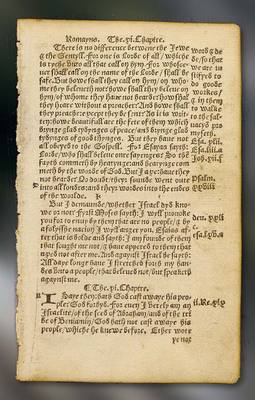 Romayns. The.pi.Chaptre.
There is no difference betwene the Jewe
& the Gentyll. For one is Lorde of all / which
is ryche vnto all that call on hym. For whosoe
uer shall call on the name of the Lorde / shall be
safe. But howe shall they call on hym / on who
me they beleueth not: howe shall they beleue on
hym / of whome they haue not hearde: howe shall
they heare without a preacher: And howe shall
they preache: except they be sent: As it is wryt
ten: howe beautifull are the fete of them which
brynge glad tydynges of peace / and brynge glad
tydynges of good thynges. But they haue not
all obeyed to the Gospell. For Esayas sayth:
Lorde / who shall beleue oure sayenges: So the
fayth commeth by hearyng / and hearyng com
meth by the worde of God. But I aye: haue they
not hearde: No doubt / theyr sounde went oute
into all londes: and theyr wordes into the endes
of the worlde.
But I demaunde / whether Israel dyd know
we or not: Fyrst Moses sayth: I wyll prouoke
you for to enuy by them that are no people / & by
a folysshe nacion I wyll anger you. Esaias af-
ter that is bolde and sayth: I am founde of them
that sought me not / & haue appered to them that
axed not after me. And agaynst Israel he sayth:
All daye longe haue I stretched forth my han-
des vnto a people / that beleued not / but speaketh
agaynst me.
¶ The.pi.Chaptre.
I Saye then: hath God cast awaye his peo
ple: God forbyd. For euen I verely am an
Israelite / of the seed of Abraham / and of the tri
be of Beniamin / God hath not cast awaye his
people / whiche he knewe before. Ether wote
ye not
word & de
de, so that
we are iu
stifyed to
do goode
workes /
& in them
to walke
to the sal-
uacyō pro
myseth.
Esa. plii.
Joh.pii.f
Psalm.
deu. ppli
c.
esa.lpb.a
iii.Re.pip